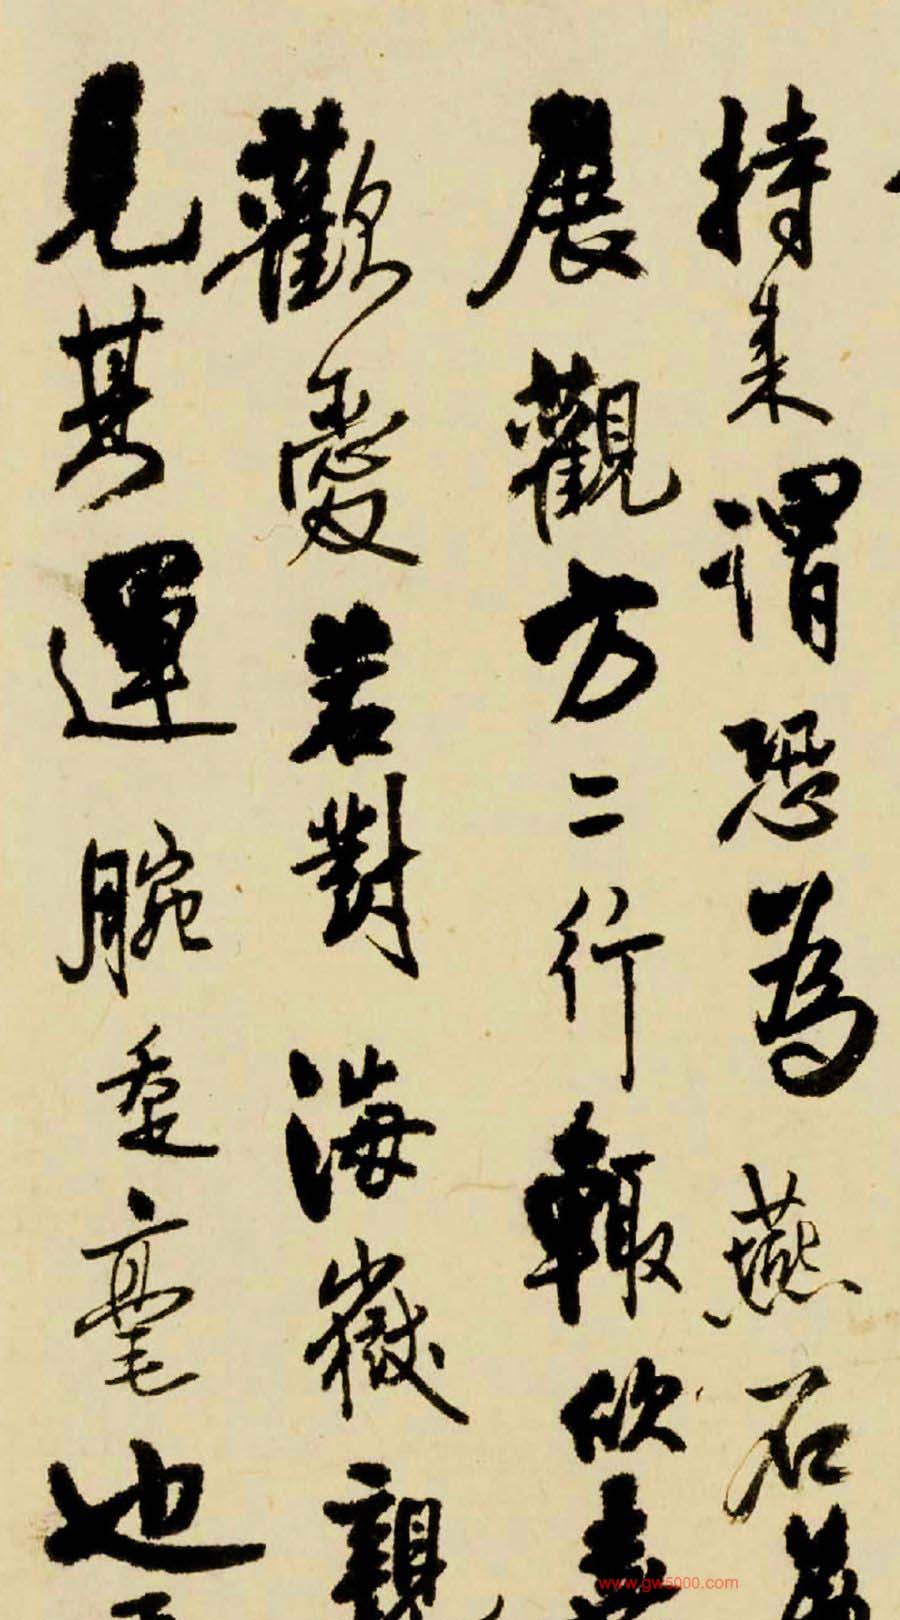 持来謂恐為燕石
展觀方二行輒欣喜
歡愛若對海嶽親
見其運腕垂毫也
www.gw5000.com